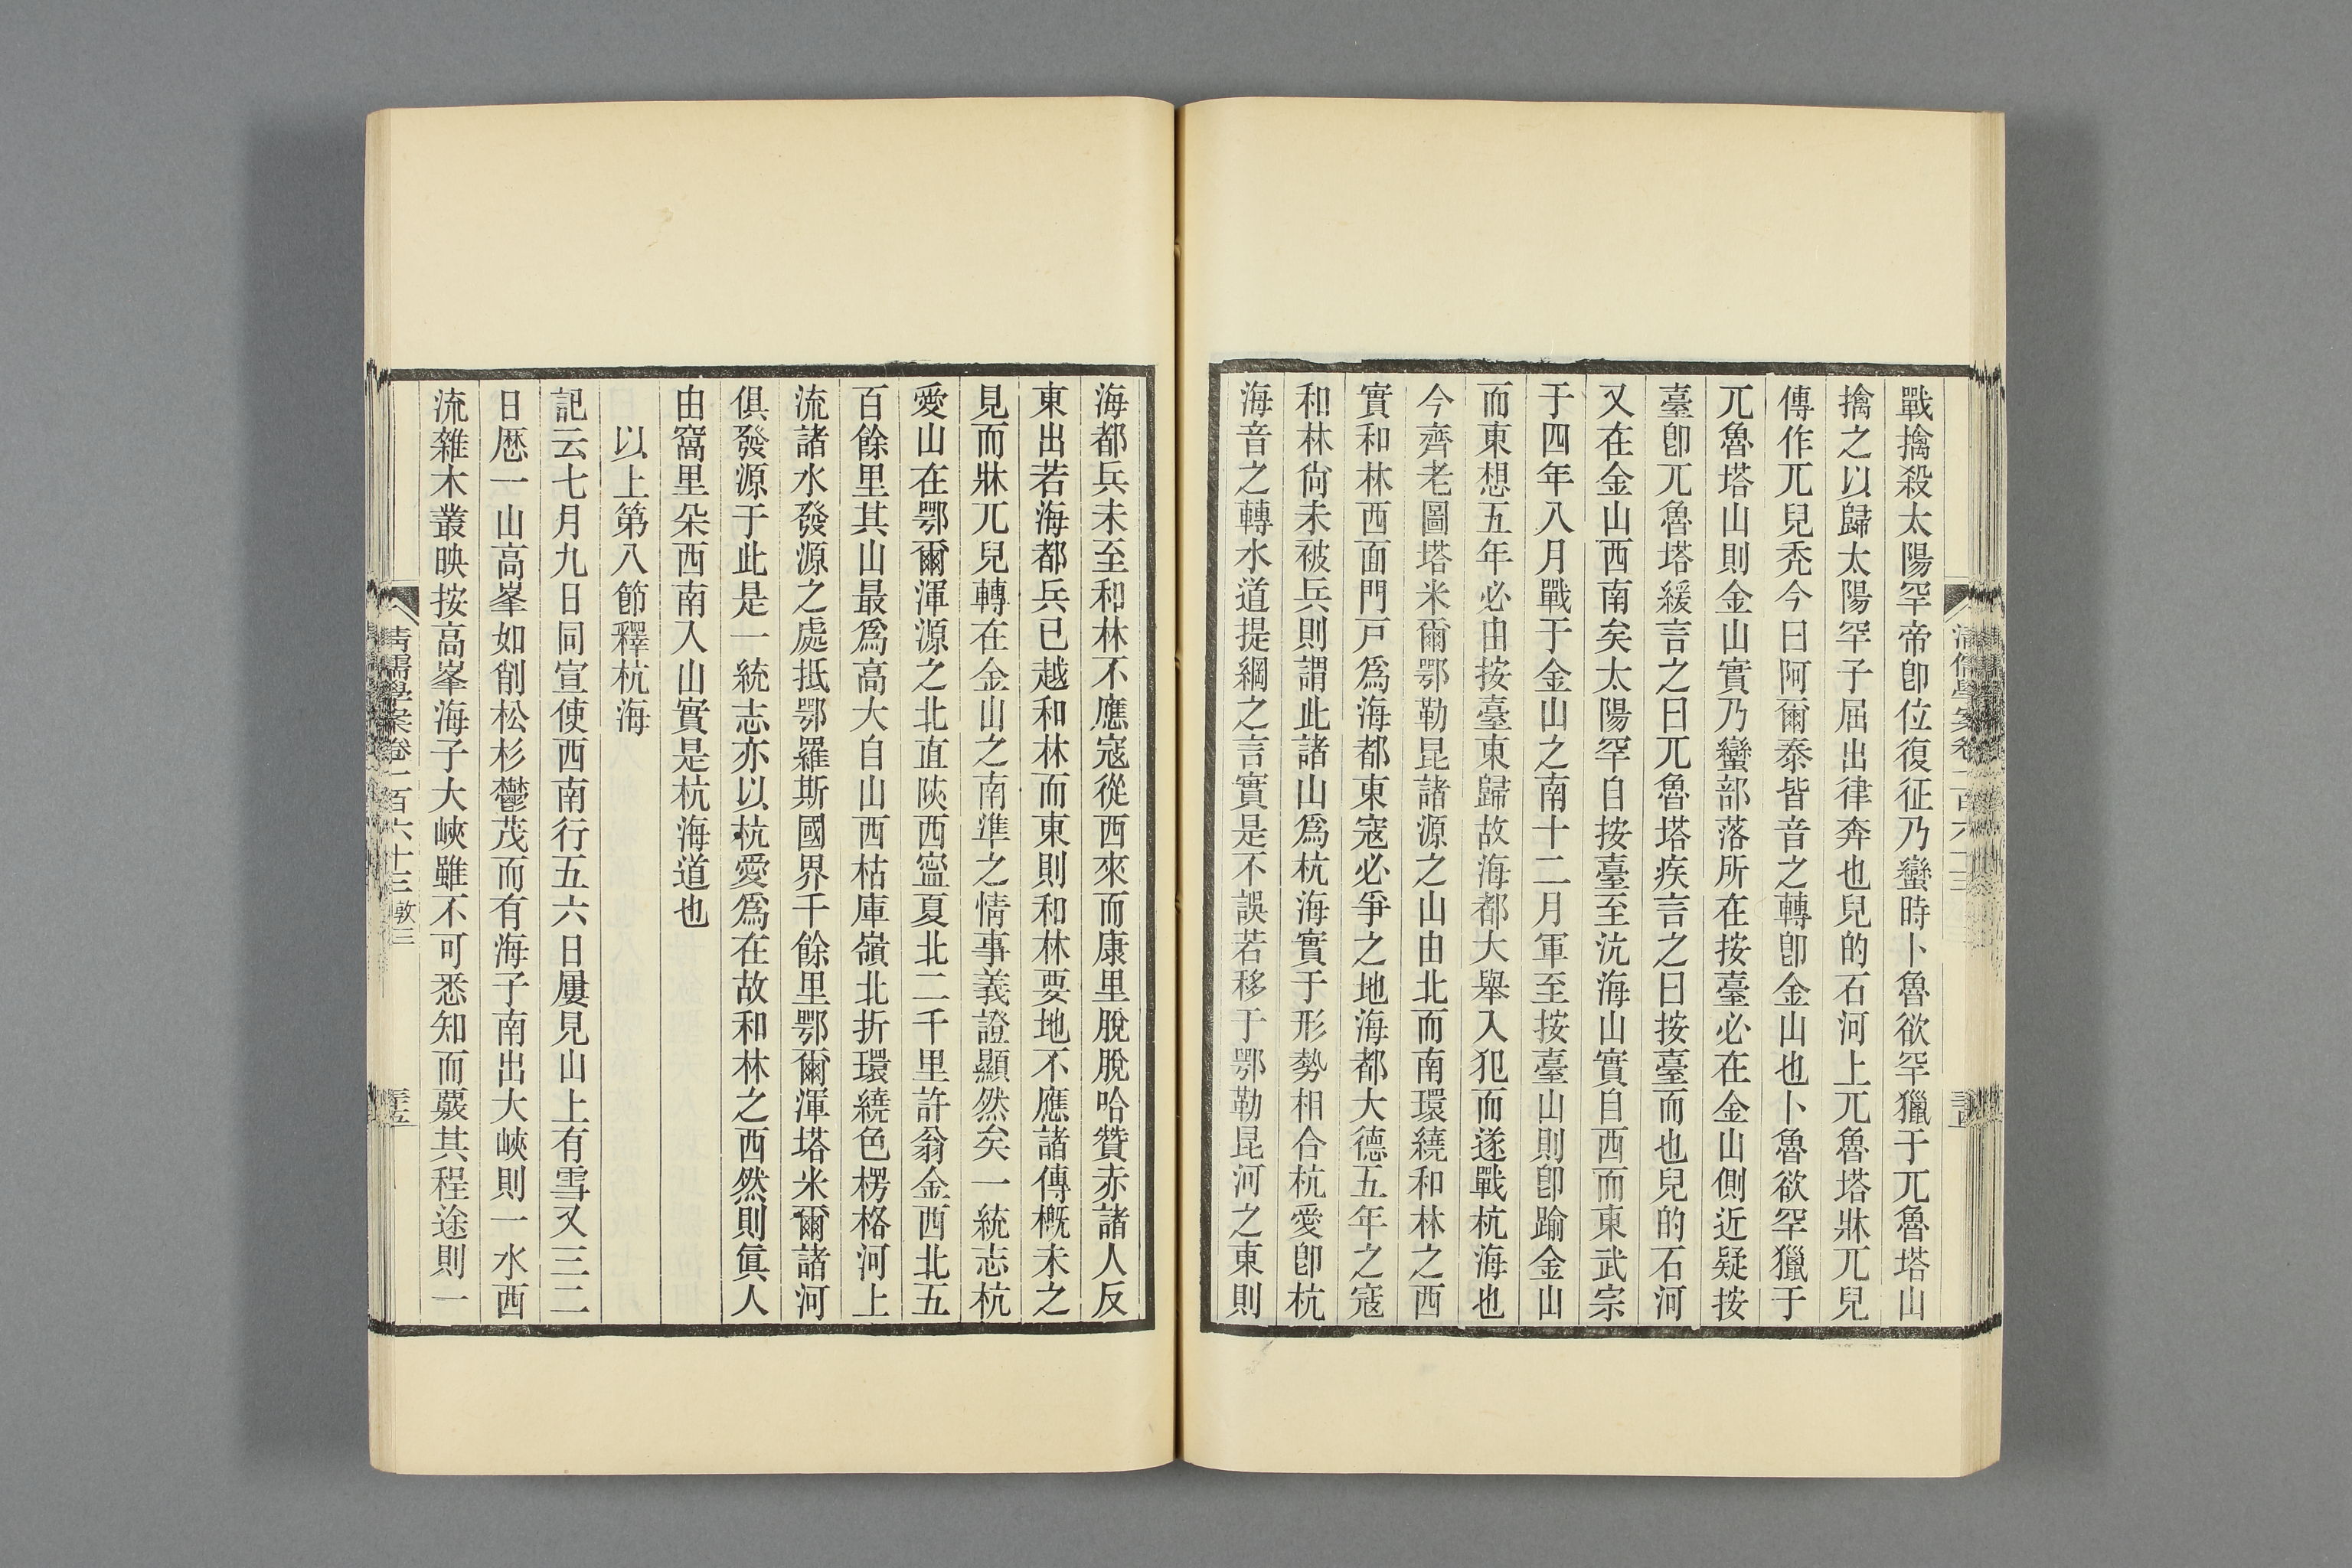 戰擒殺太陽罕帝卽位復征乃蠻時卜魯欲罕獵于兀魯塔山
擒之以歸太陽罕子屈出律奔也兒的石河上兀魯塔牀兀兒
傳作兀兒禿今曰阿爾泰皆音之轉卽金山也卜魯欲罕獵于
兀魯塔山則金山實乃蠻部落所在按臺必在金山側近疑按
臺卽兀魯塔緩言之曰兀魯塔疾言之曰按臺而也兒的石河
又在金山西南矣太陽罕自按臺至沆海山實自西而東武宗
于四年八月戰于金山之南十二月軍至按臺山則卽踰金山
而東想五年必由按臺東歸故海都大舉入犯而遂戰杭海也
今齊老圖塔米爾鄂勒昆諸源之山由北而南環繞和林之西
實和林西面門戸爲海都東寇必爭之地海都大德五年之寇
和林尙未被兵則謂此諸山爲杭海實于形勢相合杭愛卽杭
海音之轉水道提綱之言實是不誤若移于鄂勒昆河之東則
清儒學案卷一百六十三
海都兵未至和林不應寇從西來而康里脫脫哈贊赤諸人反
東出若海都兵已越和林而東則和林要地不應諸傳槪未之
見而牀兀兒轉在金山之南準之情事義證顯然矣一統志杭
愛山在鄂爾渾源之北直陝西寧夏北二千里許翁金西北五
百餘里其山最爲高大自山西枯庫嶺北折環繞色楞格河上
流諸水發源之處抵鄂羅斯國界千餘里鄂爾渾塔米爾諸河
俱發源于此是一統志亦以杭愛爲在故和林之西然則眞人
由窩里朶西南入山實是杭海道也
以上第八節釋杭海
記云七月九日同宣使西南行五六日屢見山上有雪又三二
日厯一山高峯如削松杉鬱茂而有海子南出大峽則一水西
流雜木叢映按高峯海子大峽雖不可悉知而覈其程途則一
清儒學案卷一百六十三 敦三